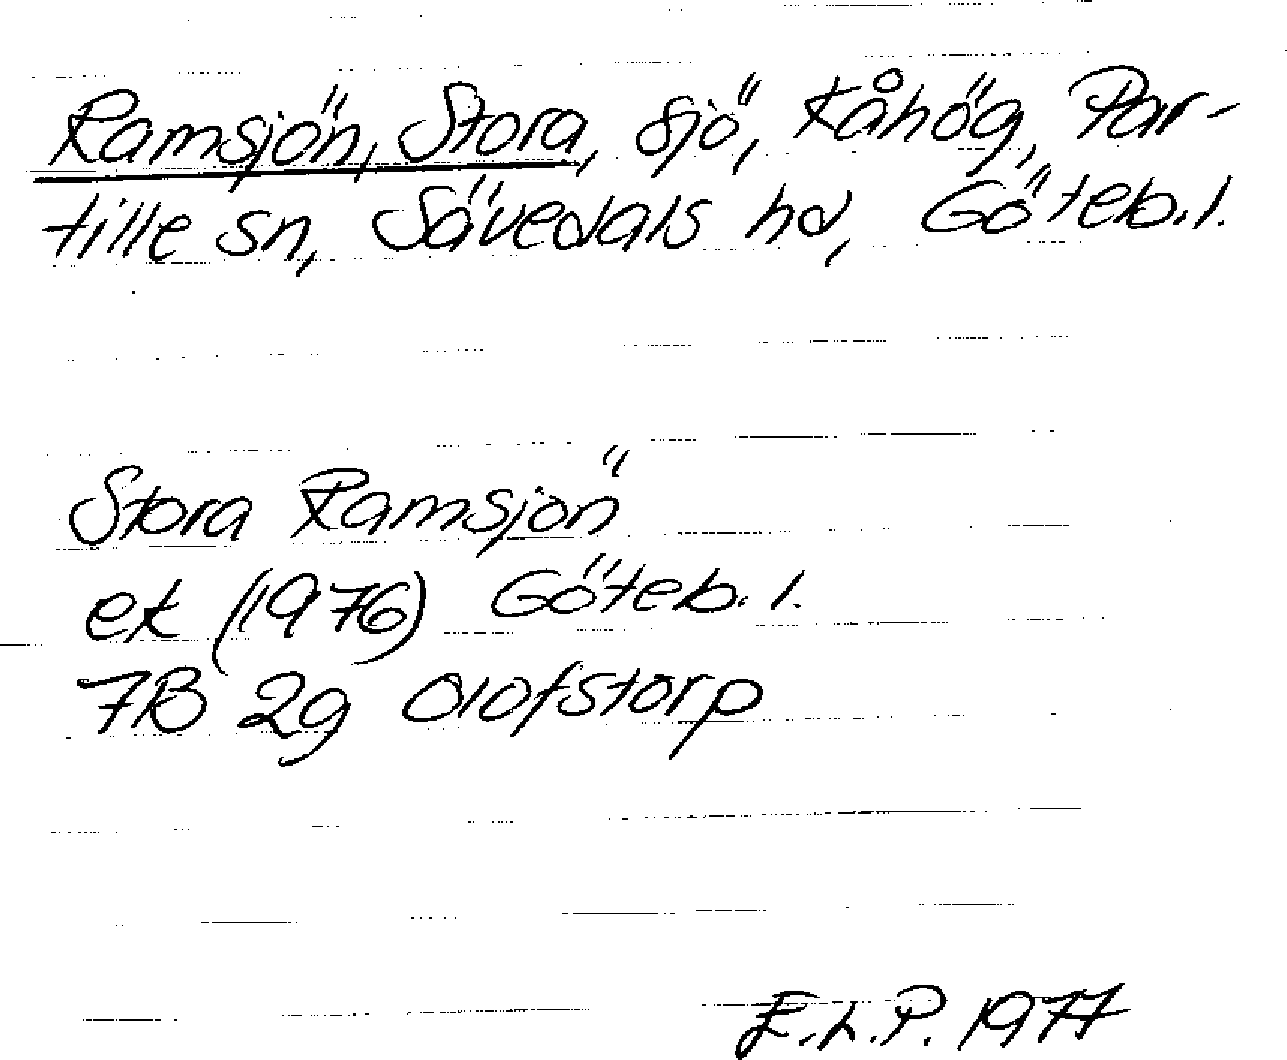 Ramsjön, Stora, sjö, Kåhög, Par-
tille sn, Sävedals hd, Göteb.l.
Stora Ramsjön
ek (1976) Göteb.l.
7B 2g Olofstorp
E.L.P. 1977